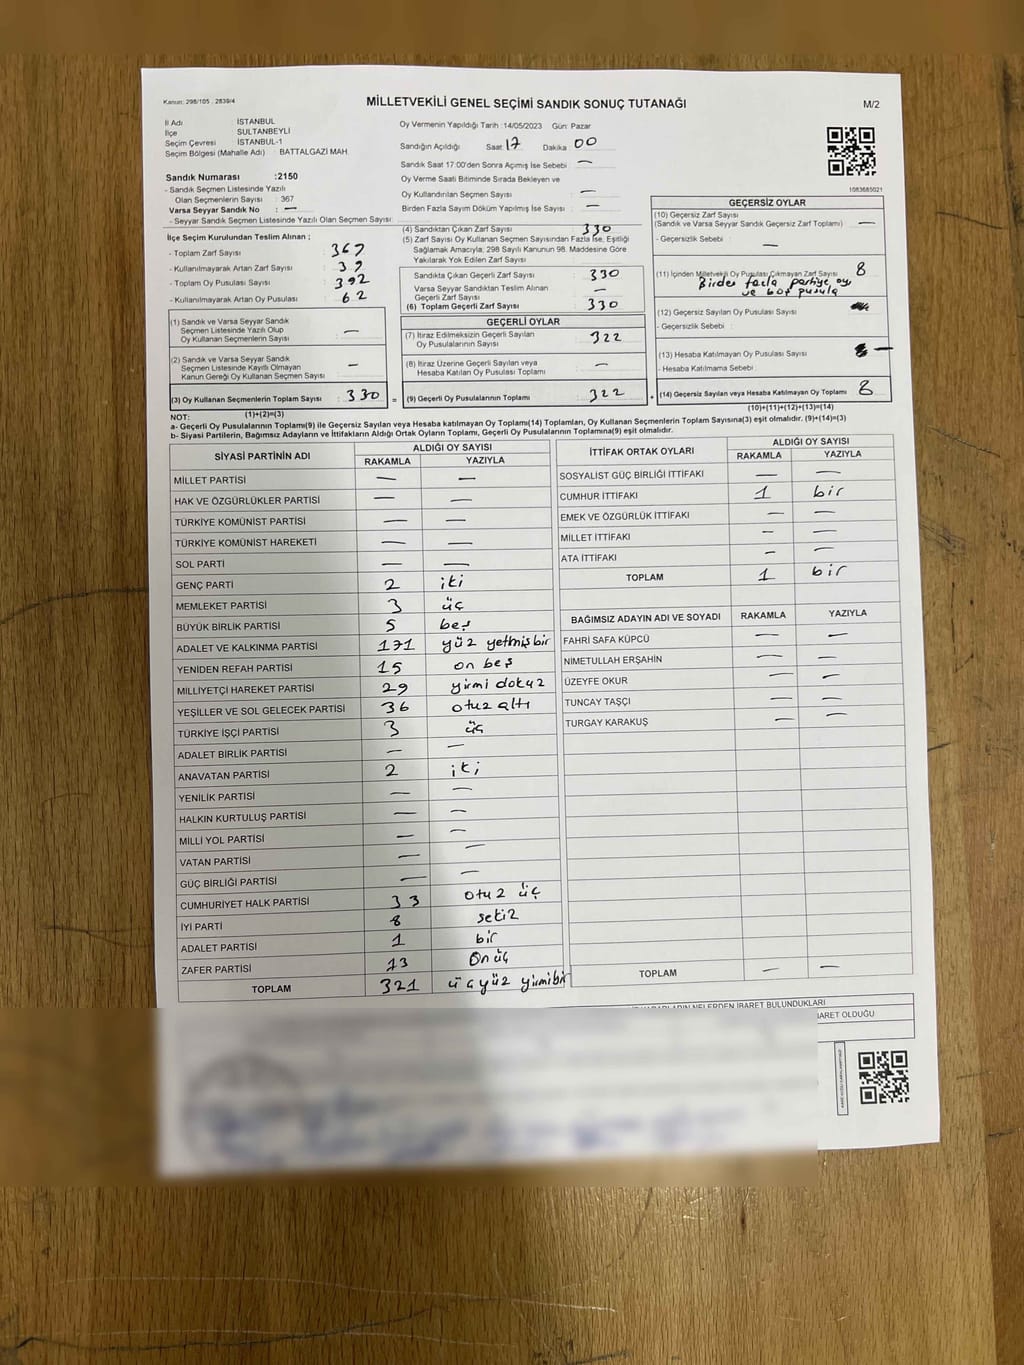 Kanun: 298/105 , 2839/4
MİLLETVEKİLİ GENEL SEÇİMİ SANDIK SONUÇ TUTANAĞI
M/2
İl Adı : İSTANBUL
İlçe SULTANBEYLİ
Seçim Çevresi : İSTANBUL-1
Seçim Bölgesi (Mahalle Adı) : BATTALGAZİ MAH.
Sandık Numarası :2150
- Sandık Seçmen Listesinde Yazılı
Olan Seçmenlerin Sayısı : 367
Varsa Seyyar Sandık No : —
- Seyyar Sandık Seçmen Listesinde Yazılı Olan Seçmen Sayısı:
Oy Vermenin Yapıldığı Tarih :14/05/2023 Gün: Pazar
Sandığın Açıldığı Saat 17 Dakika 00
Sandık Saat 17:00'den Sonra Açımış İse Sebebi : —
Oy Verme Saati Bitiminde Sırada Bekleyen ve
Oy Kullandırılan Seçmen Sayısı : —
Birden Fazla Sayım Döküm Yapılmış İse Sayısı : —
1083685021
İlçe Seçim Kurulundan Teslim Alınan ;
- Toplam Zarf Sayısı : 367
- Kullanılmayarak Artan Zarf Sayısı : 37
- Toplam Oy Pusulası Sayısı : 392
- Kullanılmayarak Artan Oy Pusulası : 62
(1) Sandık ve Varsa Seyyar Sandık
Seçmen Listesinde Yazılı Olup
Oy Kullanan Seçmenlerin Sayısı : —
(2) Sandık ve Varsa Seyyar Sandık
Seçmen Listesinde Kayıtlı Olmayan
Kanun Gereği Oy Kullanan Seçmen Sayısı : —
(3) Oy Kullanan Seçmenlerin Toplam Sayısı : 330
(1)+(2)=(3)
(4) Sandıktan Çıkan Zarf Sayısı : 330
(5) Zarf Sayısı Oy Kullanan Seçmen Sayısından Fazla İse, Eşitliği
Sağlamak Amacıyla; 298 Sayılı Kanunun 98. Maddesine Göre
Yakılarak Yok Edilen Zarf Sayısı :
Sandıkta Çıkan Geçerli Zarf Sayısı : 330
Varsa Seyyar Sandıktan Teslim Alınan
Geçerli Zarf Sayısı : —
(6) Toplam Geçerli Zarf Sayısı : 330
GEÇERLİ OYLAR
(7) İtiraz Edilmeksizin Geçerli Sayılan
Oy Pusulalarının Sayısı : 322
(8) İtiraz Üzerine Geçerli Sayılan veya
Hesaba Katılan Oy Pusulası Toplamı : —
(9) Geçerli Oy Pusulalarının Toplamı : 322
GEÇERSİZ OYLAR
(10) Geçersiz Zarf Sayısı
(Sandık ve Varsa Seyyar Sandık Geçersiz Zarf Toplamı) : —
- Geçersizlik Sebebi : —
(11) İçinden Milletvekili Oy Pusulası Çıkmayan Zarf Sayısı : 8
Birden fazla partiye oy
ve boş pusula
(12) Geçersiz Sayılan Oy Pusulası Sayısı :
- Geçersizlik Sebebi :
(13) Hesaba Katılmayan Oy Pusulası Sayısı : —
- Hesaba Katılmama Sebebi :
(14) Geçersiz Sayılan veya Hesaba Katılmayan Oy Toplamı : 8
(10)+(11)+(12)+(13)=(14)
NOT:
a- Geçerli Oy Pusulalarının Toplamı(9) ile Geçersiz Sayılan veya Hesaba katılmayan Oy Toplamı(14) Toplamları, Oy Kullanan Seçmenlerin Toplam Sayısına(3) eşit olmalıdır. (9)+(14)=(3)
b- Siyasi Partilerin, Bağımsız Adayların ve İttifakların Aldığı Ortak Oyların Toplamı, Geçerli Oy Pusulalarının Toplamına(9) eşit olmalıdır.
SİYASİ PARTİNİN ADI ALDIĞI OY SAYISI
RAKAMLA YAZIYLA
MİLLET PARTİSİ — —
HAK VE ÖZGÜRLÜKLER PARTİSİ — —
TÜRKİYE KOMÜNİST PARTİSİ — —
TÜRKİYE KOMÜNİST HAREKETİ — —
SOL PARTİ — —
GENÇ PARTİ 2 iki
MEMLEKET PARTİSİ 3 üç
BÜYÜK BİRLİK PARTİSİ 5 beş
ADALET VE KALKINMA PARTİSİ 171 yüz yetmiş bir
YENİDEN REFAH PARTİSİ 15 on beş
MİLLİYETÇİ HAREKET PARTİSİ 29 yirmi dokuz
YEŞİLLER VE SOL GELECEK PARTİSİ 36 otuz altı
TÜRKİYE İŞÇİ PARTİSİ 3 üç
ADALET BİRLİK PARTİSİ — —
ANAVATAN PARTİSİ 2 iki
YENİLİK PARTİSİ — —
HALKIN KURTULUŞ PARTİSİ — —
MİLLİ YOL PARTİSİ — —
VATAN PARTİSİ — —
GÜÇ BİRLİĞİ PARTİSİ — —
CUMHURİYET HALK PARTİSİ 33 otuz üç
İYİ PARTİ 8 sekiz
ADALET PARTİSİ 1 bir
ZAFER PARTİSİ 13 on üç
TOPLAM 321 üçyüz yirmi bir
İTTİFAK ORTAK OYLARI ALDIĞI OY SAYISI
RAKAMLA YAZIYLA
SOSYALİST GÜÇ BİRLİĞİ İTTİFAKI — —
CUMHUR İTTİFAKI 1 bir
EMEK VE ÖZGÜRLÜK İTTİFAKI — —
MİLLET İTTİFAKI — —
ATA İTTİFAKI — —
TOPLAM 1 bir
BAĞIMSIZ ADAYIN ADI VE SOYADI RAKAMLA YAZIYLA
FAHRİ SAFA KÜPCÜ — —
NİMETULLAH ERŞAHİN — —
ÜZEYFE OKUR — —
TUNCAY TAŞÇI — —
TURGAY KARAKUŞ — —
TOPLAM — —
NELERDEN İBARET BULUNDUKLARI
OLDUĞU